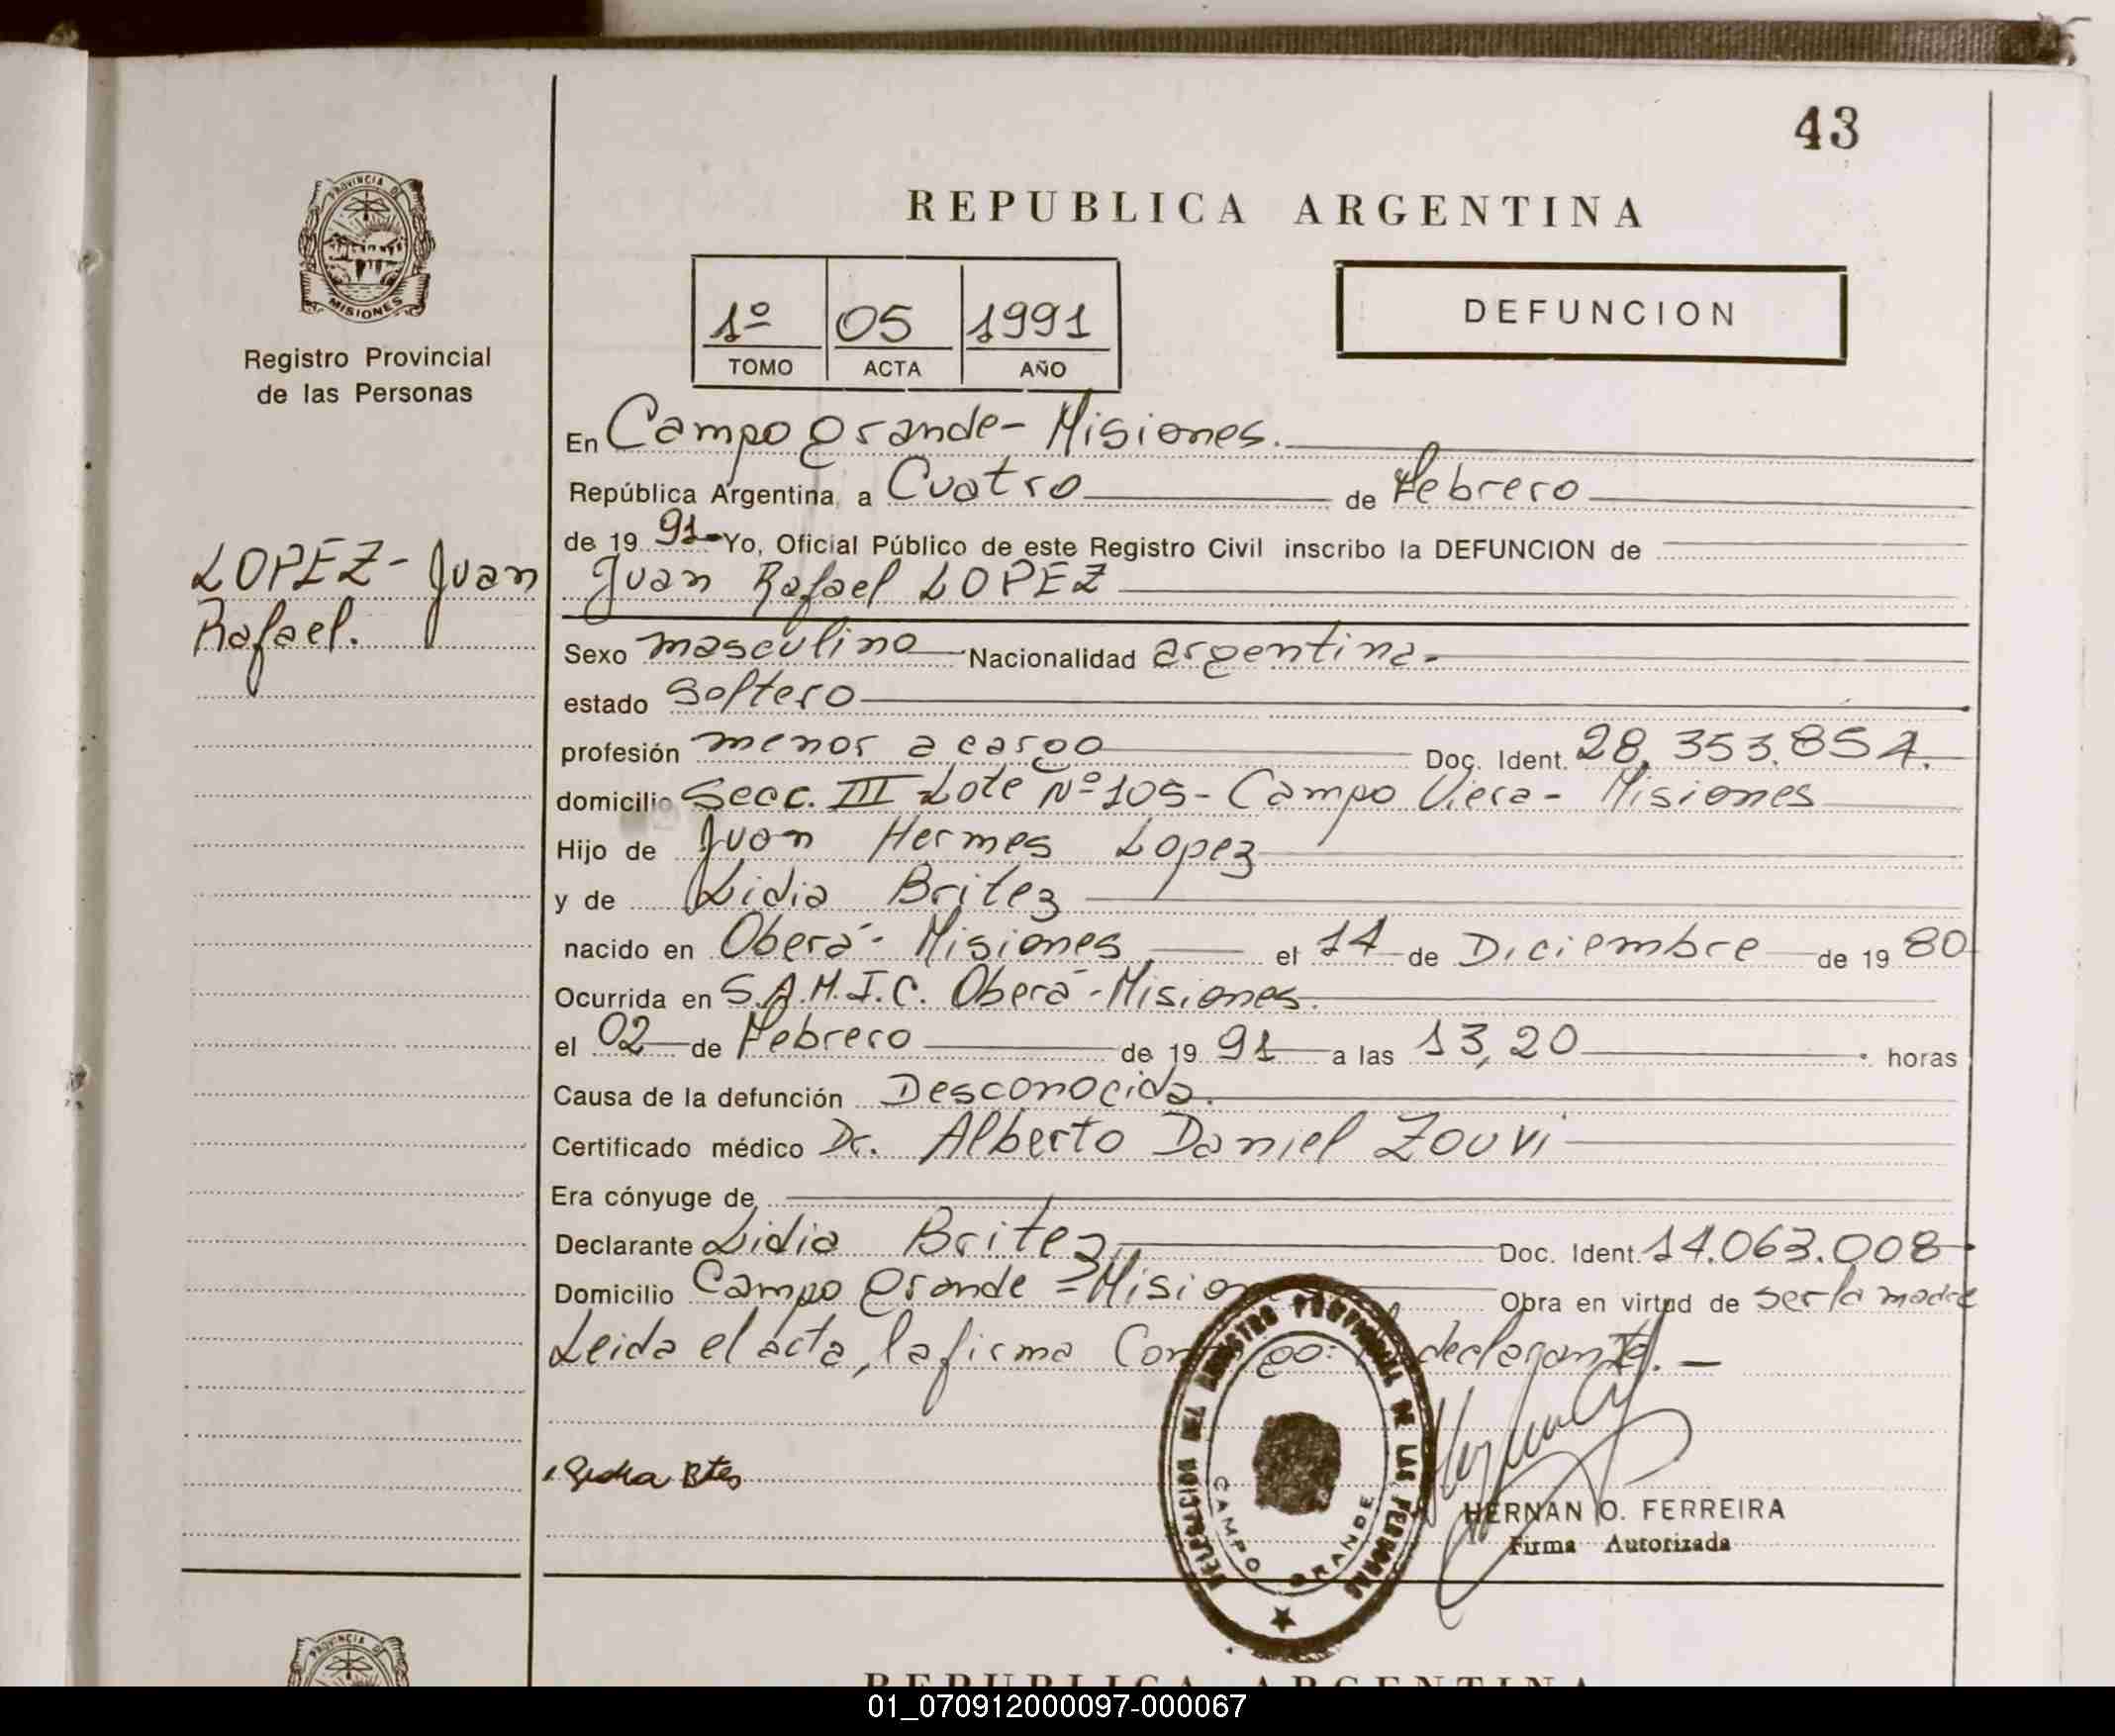 43
PROVINCIA DE
MISIONES
Registro Provincial
de las Personas
REPUBLICA ARGENTINA
1º 05 1991
TOMO ACTA AÑO
DEFUNCION
En Campo Grande - Misiones.
República Argentina, a Cuatro de Febrero
de 19 91 Yo, Oficial Público de este Registro Civil inscribo la DEFUNCION de
LOPEZ - Juan
Rafael.
Juan Rafael LOPEZ
Sexo masculino Nacionalidad argentina.
estado Soltero
profesión menor a cargo Doc. Ident. 28.353.854.
domicilio Secc. III Lote Nº 105 - Campo Viera - Misiones
Hijo de Juan Hermes Lopez
y de Lidia Britez
nacido en Oberá - Misiones el 14 de Diciembre de 19 80
Ocurrida en S.A.M.I.C. Oberá - Misiones.
el 02 de Febrero de 19 91 a las 13,20 horas
Causa de la defunción Desconocida.
Certificado médico Dr. Alberto Daniel ZOUVI
Era cónyuge de
Declarante Lidia Britez Doc. Ident. 14.063.008
Domicilio Campo Grande = Mision Obra en virtud de ser la madre
Leida el acta, la firma declarante. —
DELEGACION DEL REGISTRO PROVINCIAL DE LAS PERSONAS
CAMPO GRANDE
HERNAN O. FERREIRA
Firma Autorizada
PROVINCIA DE
REPUBLICA ARGENTINA
01_070912000097-000067